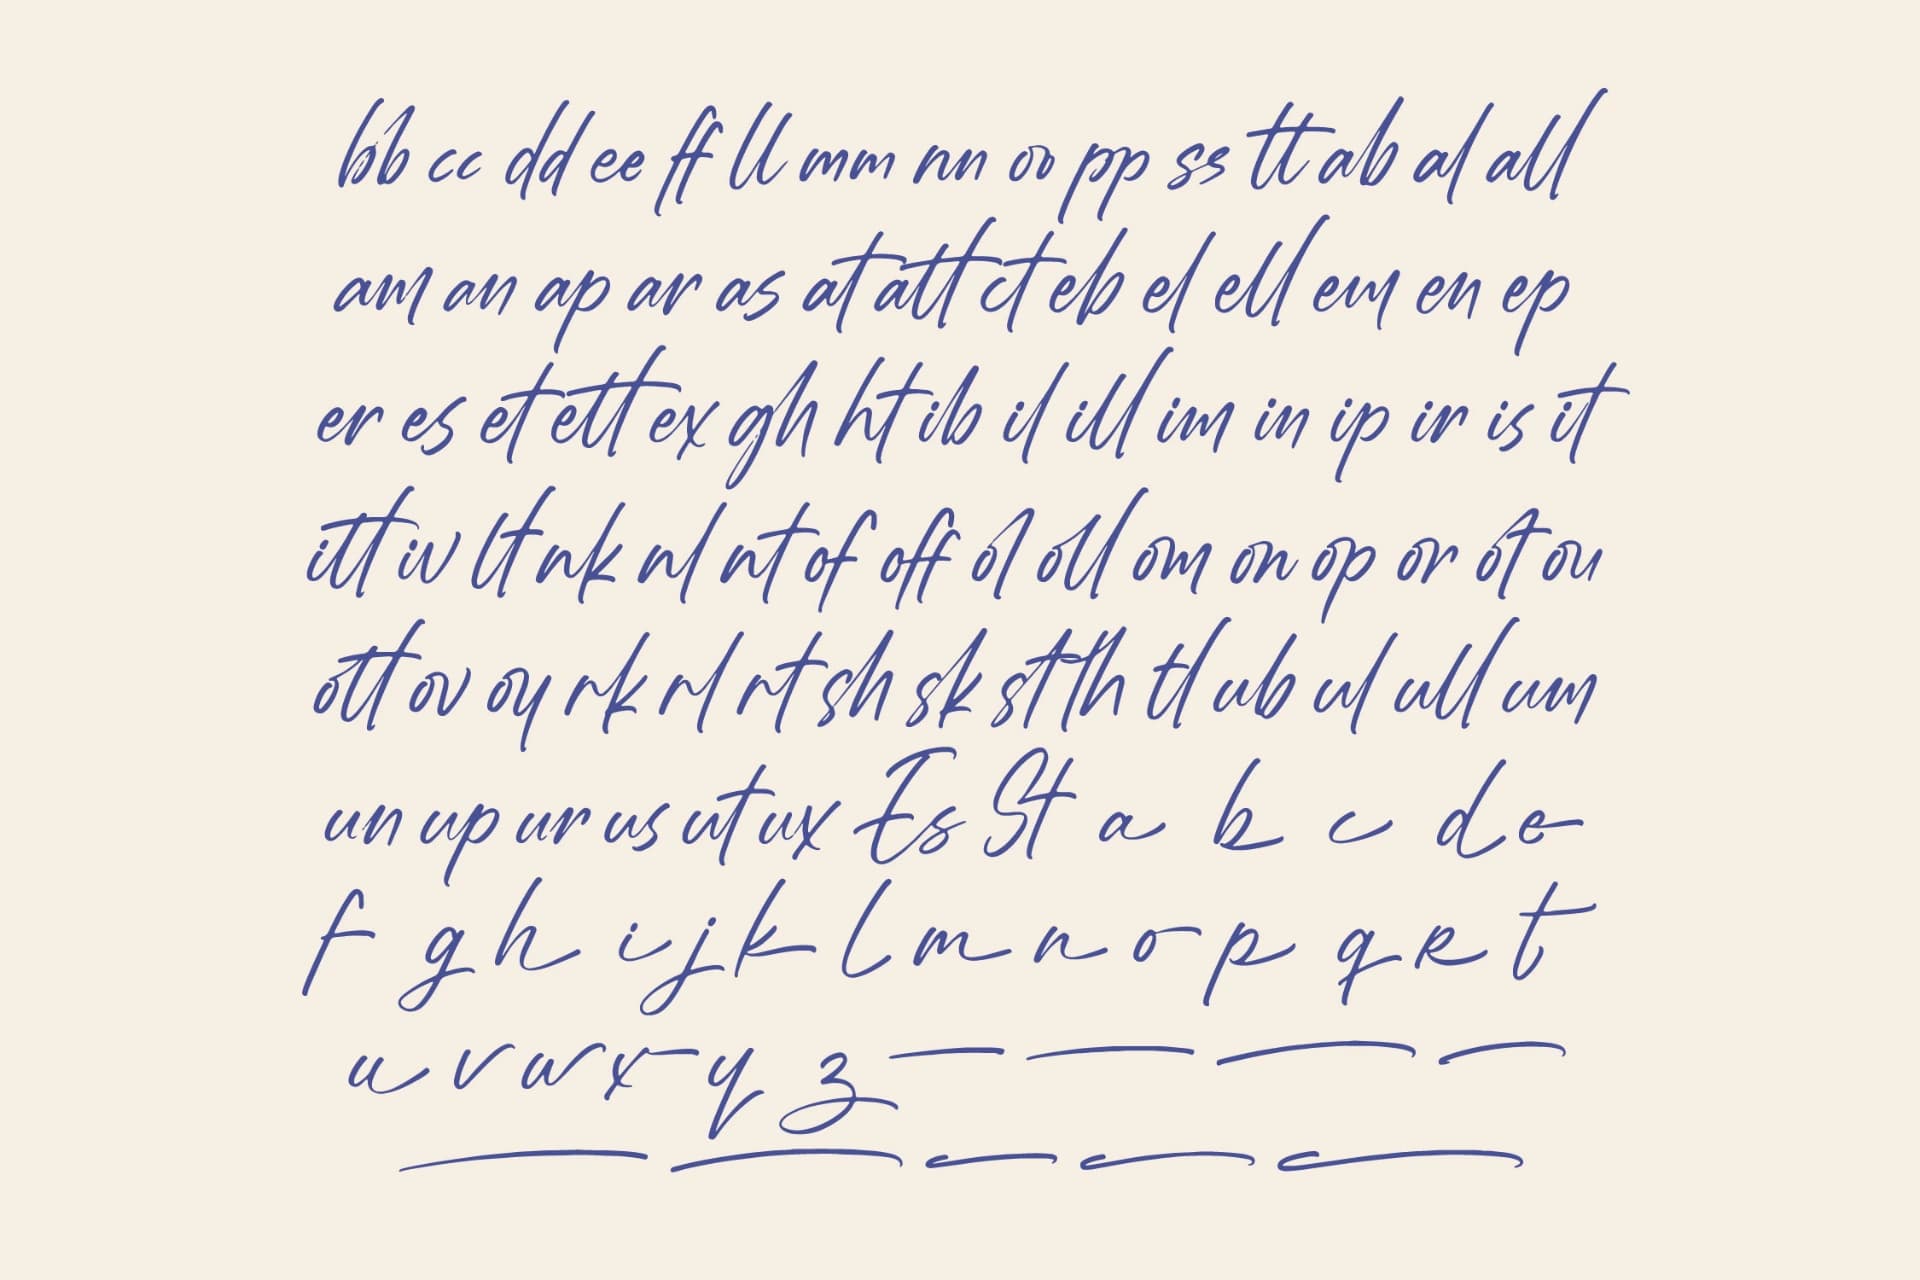 bb cc dd ee ff ll mm nn oo pp ss tt ab al all
am an ap ar as at att ct eb el ell em en ep
er es et ett ex gh ht ib il ill im in ip ir is it
itt iv lt nk nl nt of off ol oll om on op or ot ou
ott ov oy rk rl rt sh sk st th tl ub ul ull um
un up ur us ut ux Es St a b c d e
f g h i j k l m n o p q r t
u v w x y z